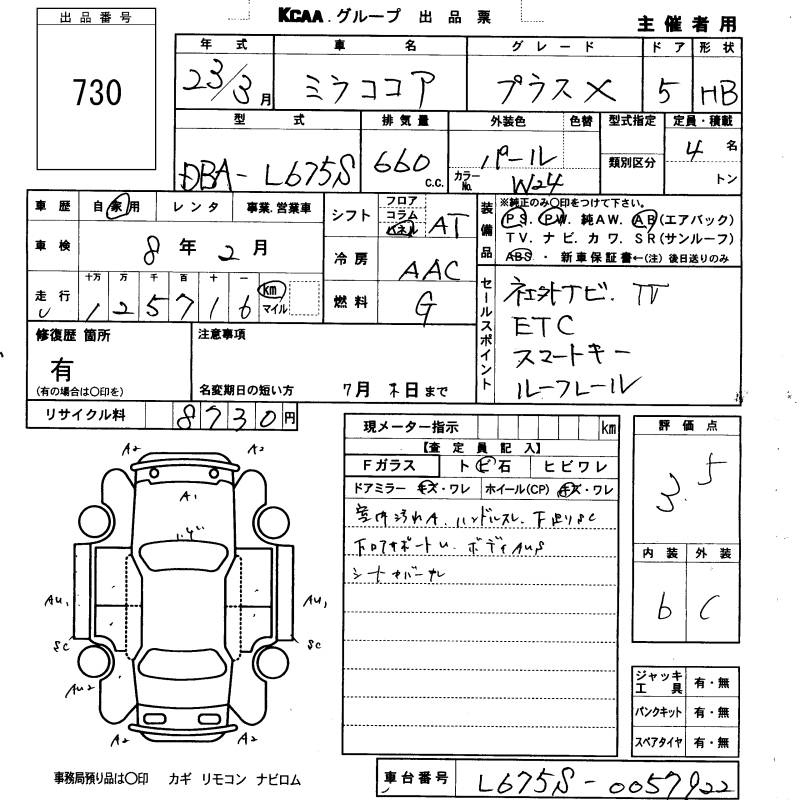 KCAA グループ 出品票
主催者用
出品番号
730
年式 車名 グレード ドア 形状
23/3月 ミラココア プラスX 5 HB
型式 排気量 外装色 色替 型式指定 定員・積載
DBA-L675S 660 C.C. パール カラーNo. W24 類別区分 4名 トン
車歴 自家用 レンタ 事業.営業車
車検 8年2月
走行 十万 万 千 百 十 一
125716 km マイル
シフト フロア コラム パネル AT
冷房 AAC
燃料 G
装備品
※純正のみ○印をつけて下さい。
PS. PW. 純AW. AB(エアバック)
TV. ナビ. カワ. SR(サンルーフ)
ABS. 新車保証書←(注) 後日送りのみ
セールスポイント
社外ナビ. TV
ETC
スマートキー
ルーフレール
修復歴 箇所
有
(有の場合は○印を)
注意事項
名変期日の短い方 7月末日まで
リサイクル料 8730円
現メーター指示 km
【査定員記入】
Fガラス トビ石 ヒビワレ
ドアミラー キズ・ワレ ホイール(CP) キズ・ワレ
室内汚れA. ハンドルスレ. 下廻りSC
ボディAUS
評価点
3.5
内装 外装
b C
A2 A2
A1
AU1 AU1
SC SC
AU2
A2 A2
ジャッキ工具 有・無
パンクキット 有・無
スペアタイヤ 有・無
事務局預り品は○印 カギ リモコン ナビロム
車台番号 L675S-0057922